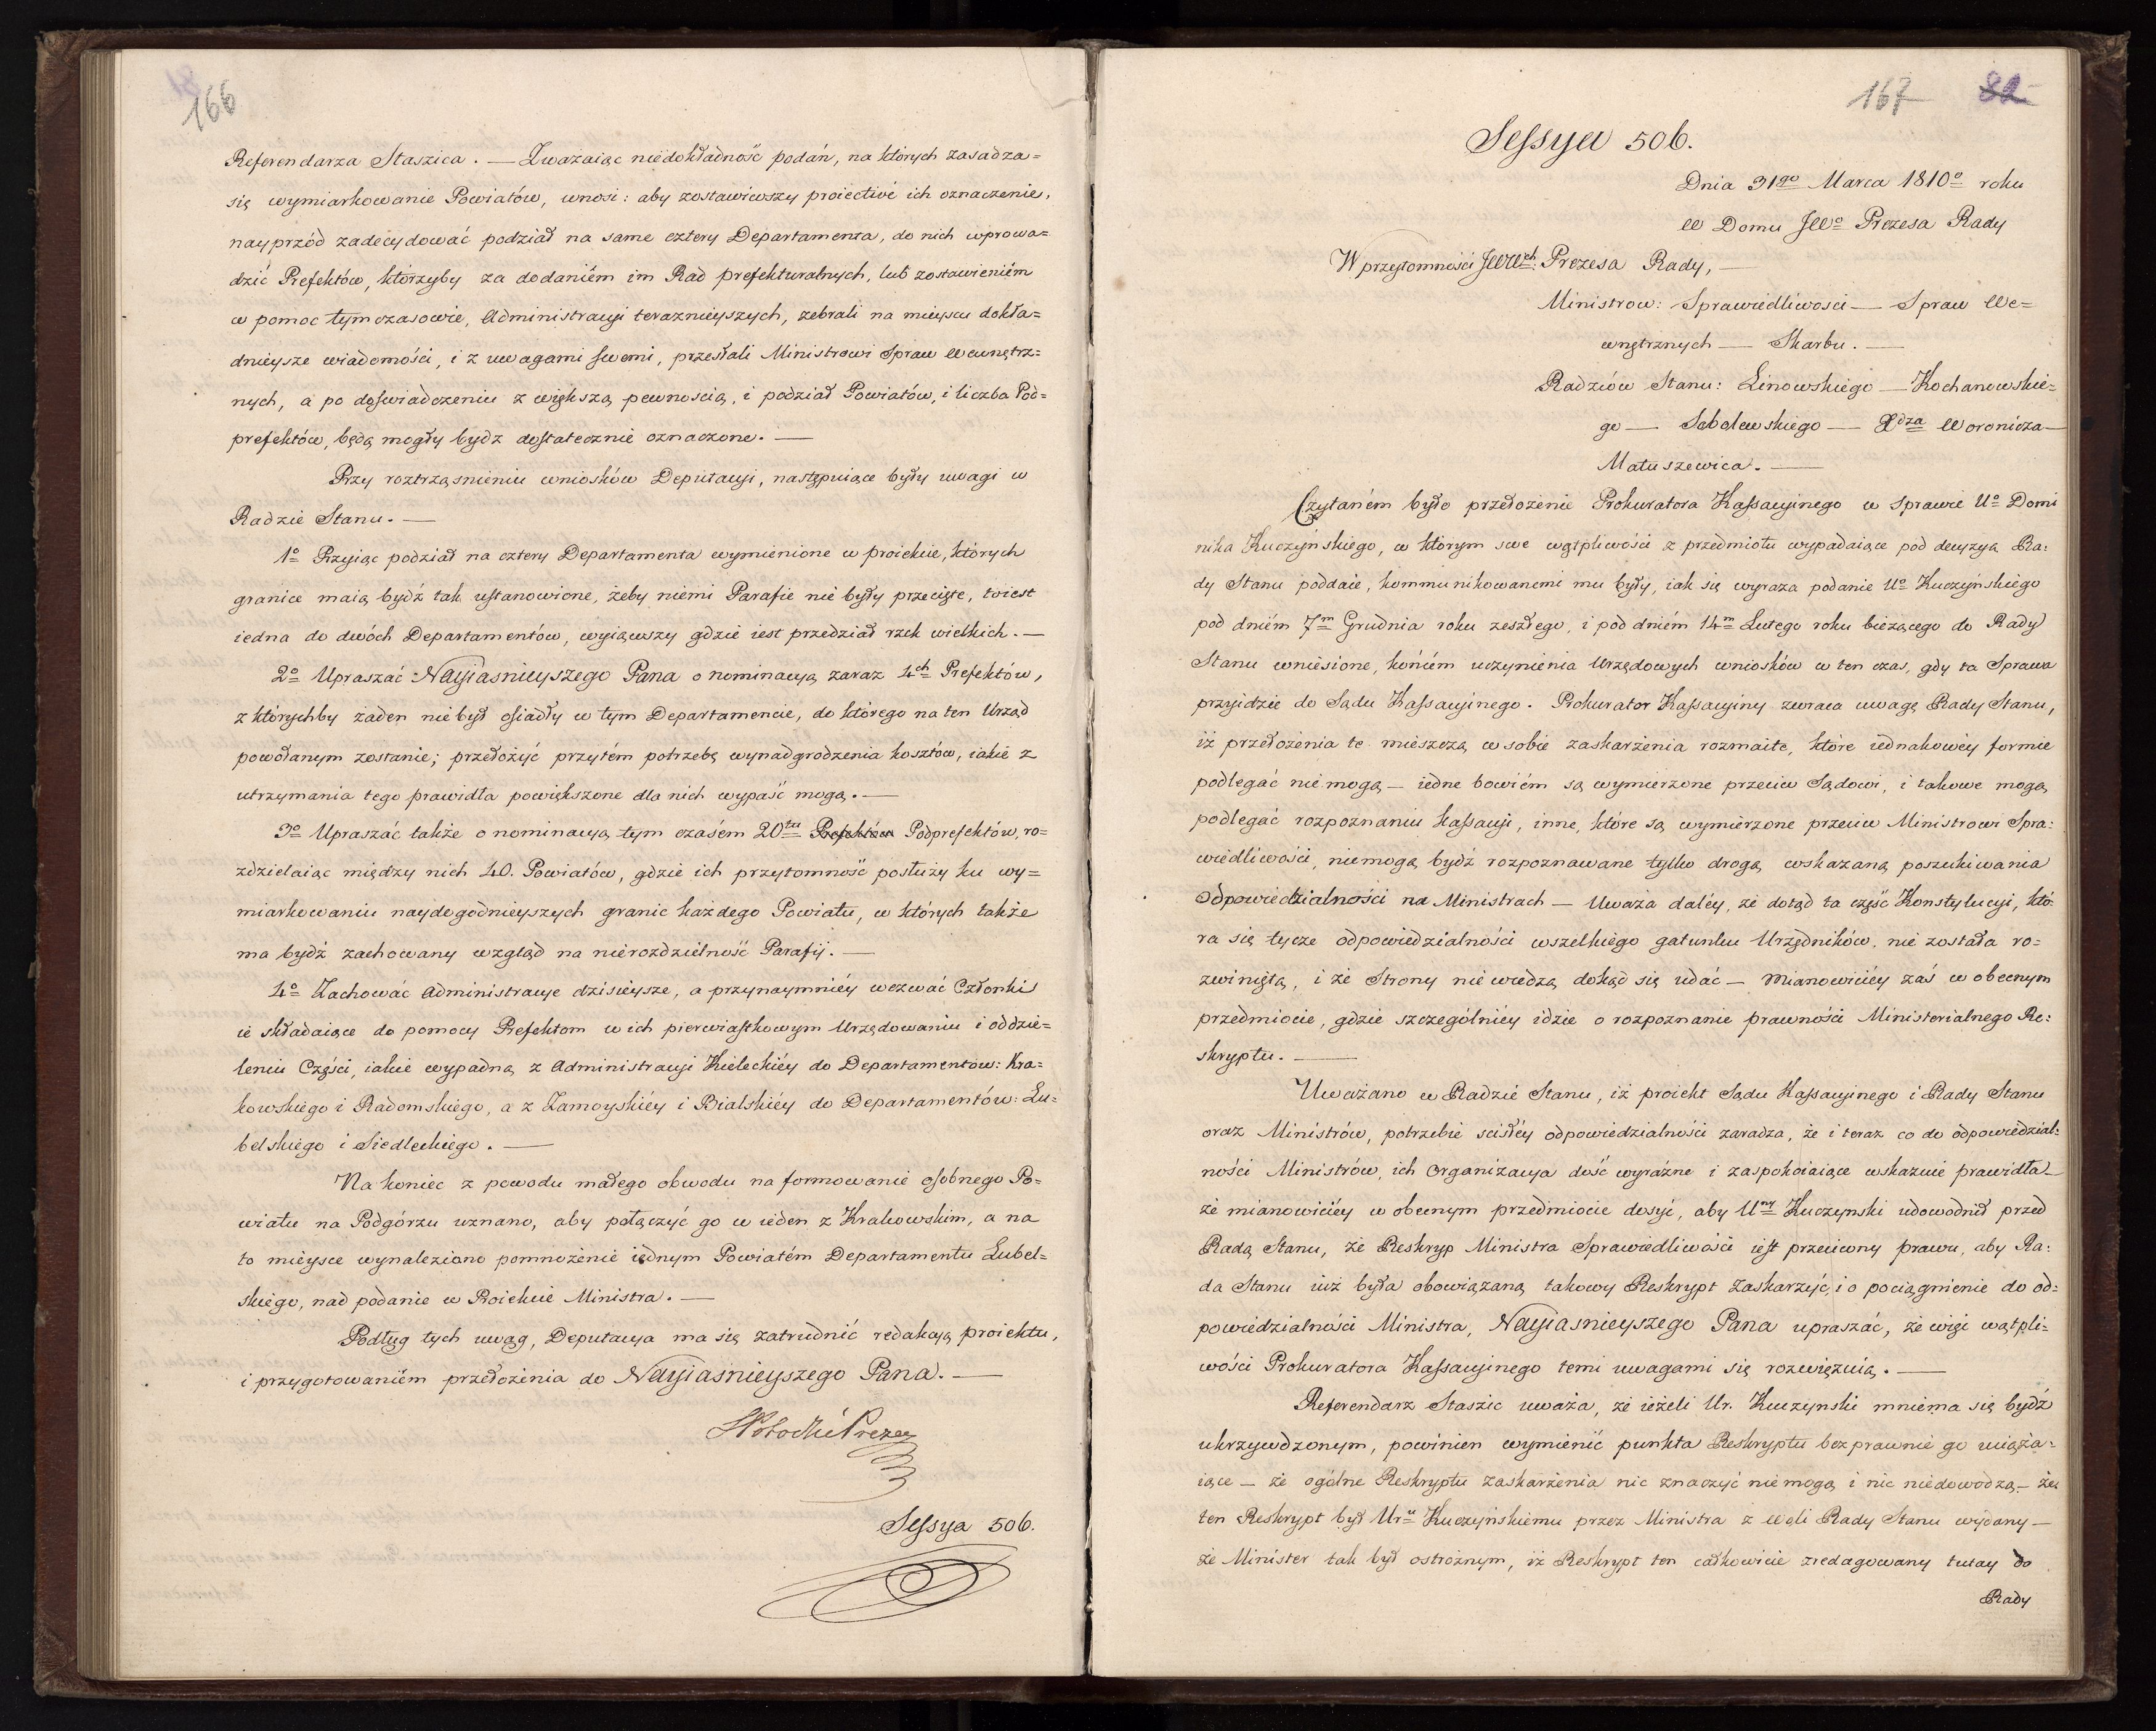 166
Referendarza Staszica. — Zważaiąc niedokładność podań, na których zasadza=
się wymiarkowanie Powiatów, wnosi: aby zostawiwszy proiectivé ich oznaczenie,
nayprzód zadecydować podział na same cztery Departamenta, do nich wprowa=
dzić Prefektów, którzyby za dodaniém im Rad prefekturalnych, lub zostawieniém
w pomoc tymczasowie, Administracyi teraznieyszych, zebrali na mieyscu dokła=
dnieysze wiadomości, i z uwagami swemi, przesłali Ministrowi Spraw Wewnętrz=
nych, a po doświadczeniu z większą pewnością, i podział Powiatów, i liczba Pod=
prefektów, będą mogły bydz dostatecznie oznaczone. —
Przy roztrząsnieniu wniosków Deputacyi, następuiące były uwagi w
Radzie Stanu. —
1o Przyiąc podział na cztery Departamenta wymienione w proiekcie, których
granice maią bydź tak ustanowione, żeby niemi Parafie nie były przecięte, toiest
iedna do dwóch Departamentów, wyiąwszy gdzie iest przedział rzek wielkich. —
2o Upraszać Nayiasnieyszego Pana o nominacyą zaraz 4ch Prefektów,
z którychby żaden nie był osiadły w tym Departamencie, do którego na ten Urząd
powołanym zostanie; przełożyć przytém potrzebę wynadgrodzenia kosztów, iakie z
utrzymania tego prawidła powiększone dla nich wypaść mogą. —
3o Upraszać także o nominacyą tym czasém 20tu Prefektów Podprefektów, ro=
zdzielaiąc między nich 40. Powiatów, gdzie ich przytomność posłuży ku wy=
miarkowaniu naydogodnieyszych granic każdego Powiatu, w których także
ma bydź zachowany wzgląd na nierozdzielność Parafij. —
4o Zachować Administracye dzisieysze, a przynaymniéy wezwać Członki
ie składaiące do pomocy Prefektom w ich pierwiastkowym Urzędowaniu i oddzie=
leniu Części, iakie wypadną z Administracyi Kieleckiéy do Departamentów: Kra=
kowskiego i Radomskiego, a z Zamoyskiéy i Bialskiéy do Departamentów: Lu=
belskiego i Siedleckiego. —
Na koniec z powodu małego obwodu na formowanie osobnego Po=
wiatu na Podgórzu uznano, aby połączyć go w ieden z Krakowskim, a na
to mieysce wynaleziono pomnożenie iednym Powiatém Departamentu Lubel=
skiego, nad podanie w Proiekcie Ministra. —
Podług tych uwag, Deputacya ma się zatrudnić redakcyą proiektu,
i przygotowaniém przełożenia do Nayiasnieyszego Pana. —
Potocki Prezes
Sessya 506.
167 82
Sessya 506.
Dnia 31go Marca 1810o roku
W Domu JWo Prezesa Rady
W przytomności JWWch: Prezesa Rady, —
Ministrow: Sprawiedliwosci — Spraw We=
wnętrznych — Skarbu. —
Radzców Stanu: Linowskiego — Kochanowskie=
go — Sobolewskiego — Xdza Woronicza —
Matuszewica. —
Czytaném było przełożenie Prokuratora Kassacyinego w sprawie Uo Domi
nika Kuczyńskiego, w którym swe wątpliwości z przedmiotu wypadaiące pod decyzyą Ra:
dy Stanu poddaie, kommunikowanemi mu były, iak się wyraża podanie Uo Kuczyńskiego
pod dniém 7m Grudnia roku zeszłego, i pod dniém 14m Lutego roku bieżącego do Rady
Stanu wniesione, końcém uczynienia Urzędowych wniosków w ten czas, gdy ta Sprawa
przyidzie do Sądu Kassacyinego. Prokurator Kassacyiny zwraca uwagę Rady Stanu,
iż przełożenia te mieszczą w sobie zaskarżenia rozmaite, które iednakowéy formie
podlegać nie mogą — iedne bowiém są wymierzone przeciw Sądowi, i takowe mogą
podlegać rozpoznaniu Kassacyi, inne, które są wymierzone przeciw Ministrowi Spra:
wiedliwości, niemogą bydź rozpoznawane tylko drogą wskazaną poszukiwania
odpowiedzialności na Ministrach — Uważa daléy, że dotąd ta część Konstytucyi, któ:
ra się tycze odpowiedzialności wszelkiego gatunku Urzędników, nie została ro=
zwiniętą, i że Strony nie wiedzą dokąd się udać — mianowiciéy zaś w obecnym
przedmiocie, gdzie szczególniéy idzie o rozpoznanie prawności Ministerialnego Re:
skryptu. —
Uważano w Radzie Stanu, iż proiekt Sądu Kassacyinego i Rady Stanu
oraz Ministrów, potrzebie scisłéy odpowiedzialności zaradza, że i teraz co do odpowiedzial:
ności Ministrów, ich Organizacya dość wyraźne i zaspokaiaiące wskazuie prawidła —
że mianowiciéy w obecnym przedmiocie dosyć, aby Uny Kuczynski udowodnił przed
Radą Stanu, że Reskryp Ministra Sprawiedliwości iest przeciwny prawu, aby Ra:
da Stanu iuż była obowiązaną takowy Reskrypt zaskarżyć, i o pociągnienie do od:
powiedzialności Ministra, Nayiasnieyszego Pana upraszać, że więc wątpli=
wości Prokuratora Kassacyinego temi uwagami się rozwięzuią. —
Referendarz Staszic uważa, że ieżeli Ur. Kuczynski mniema się bydź
ukrzywdzonym, powinien wymienić punkta Reskryptu bezprawnie go uciąża=
iące — że ogólne Reskryptu zaskarżenia nic znaczyć nie mogą i nic niedowodzą — że
ten Reskrypt był Uru Kuczyńskiemu przez Ministra z Woli Rady Stanu wydany —
że Minister tak był ostrożnym, iż Reskrypt ten całkowicie zredagowany tutay do
Rady